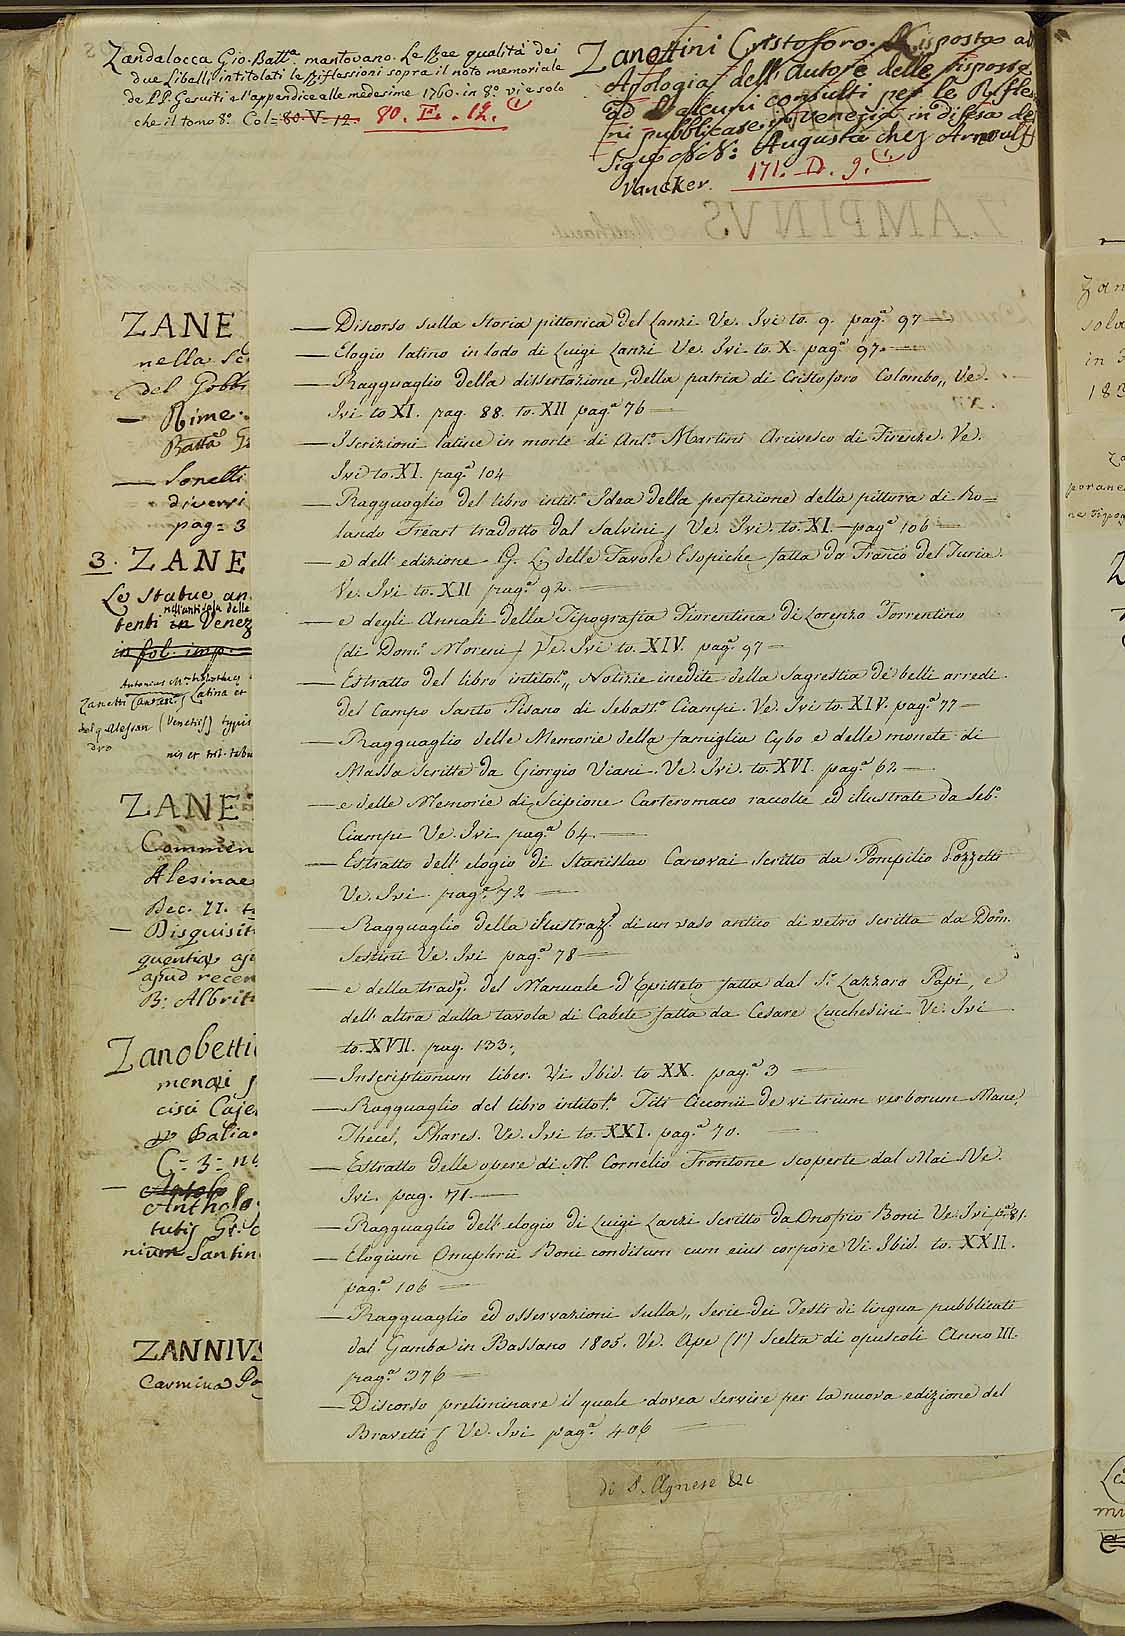 Zandalocca Gio. Batt.a mantovano. Le Ree qualità dei
due libelli intitolati le Riflessioni sopra il noto memoriale
de PP. Gesuiti e l'appendice alle medesime 1760. in 8.o vi è solo
che il tomo 8.o Col= 80. V. 12. 80. E. 12.
Zanettini Cristoforo. Risposta al
Apologia dell'Autore delle risposte
ad alcuni consulti per le Rifles
ni pubblicate in Venezia in difesa de
Sig.r N: Augusta chez Arnoulf
Vancker. 171. D. 9.
ZAMPINVS
ZANE
nella Sc
del Gobb
— Rime.
Batta G
— Sonetti
diversi
pag= 3
3. ZANE
Le Statue an
nell'antisala delle
tenti in Venez
in fol. imp.
Antonius M.a bibliothecę
Zanetti Latina et
Alessan (Venetiis) typis
dro
ZANE
Commen
Alesinae
Dec. II.
— Disquisit
quentia ap
apud recen
B: Albrit
Zanobetti
menari
cisci Caje
Italia
C= 3= n
— Antolo
Antholo
tutis Gr. c
nium Santin
ZANNIVS
Carmina Po
— Discorso sulla Storia pittorica del Lanzi Ve. Ivi to. 9. pag.a 97 —
— Elogio latino in lodo di Luigi Lanzi Ve. Ivi to. X. pag.a 97. —
— Ragguaglio della dissertazione, della patria di Cristoforo Colombo,, Ve.
Ivi to XI. pag. 88. to. XII pag.a 76 —
— Iscrizioni latine in morte di Ant.o Martini Arcivesco di Firenze. Ve.
Ivi to. XI. pag.a 104
— Ragguaglio del libro intit.o Idea della perfezione della pittura di Ro=
lando Freart tradotto dal Salvini / Ve. Ivi. to. XI. — pag.a 106 —
— e dell'edizione G. L. delle Favole Esopiche fatta da Franco del Furia.
Ve. Ivi to. XII pag.a 92. —
— e degli Annali della Tipografia Fiorentina di Lorenzo Torrentino
(di Dom.o Moreni) Ve. Ivi to. XIV. pag.a 97 —
— Estratto del libro intitol.o,, Notizie inedite della Sagrestia de' belli arredi
del Campo Santo Pisano di Sebast.o Ciampi. Ve. Ivi to. XIV. pag.a 77 —
— Ragguaglio delle Memorie della famiglia Cybo e delle monete di
Massa scritte da Giorgio Viani. Ve. Ivi. to. XVI. pag.a 62 —
— e delle Memorie di Scipione Carteromaco raccolte ed illustrate da Seb.o
Ciampi Ve. Ivi pag.a 64. —
— Estratto dell'elogio di Stanislao Canovai scritto da Pompilio Pozzetti
Ve. Ivi pag.a 72 —
— Ragguaglio della illustraz.e di un vaso antico di vetro scritta da Dom.
Sestini Ve. Ivi pag.a 78 —
— e della trad.e del Manuale d'Epitteto fatta dal S.r Lazzaro Papi, e
dell'altra dalla tavola di Cabete fatta da Cesare Lucchesini Ve. Ivi
to. XVII. pag. 133.,
— Inscriptionum liber. Vi Ibid. to XX. pag.a 3 —
— Ragguaglio del libro intitol.o Titi Cicconii de vi trium verborum Mane,
Thecel, Phares. Ve. Ivi to. XXI. pag.a 70. —
— Estratto delle opere di M. Cornelio Frontone scoperte dal Mai Ve.
Ivi. pag. 71. —
— Ragguaglio dell'elogio di Luigi Lanzi scritto da Onofrio Boni Ve. Ivi p.a 81.
— Elogium Onuphrii Boni conditum cum eius corpore Vi. Ibid. to. XXII.
pag.a 106 —
— Ragguaglio ed osservazioni sulla,, Serie dei Testi di lingua pubblicati
dal Gamba in Bassano 1805. Ve. Ape (l') Scelta di opuscoli Anno III.
pag.a 376 —
— Discorso preliminare il quale dovea servire per la nuova edizione del
Bravetti / Ve. Ivi pag.a 406 —
di S. Agnese &c